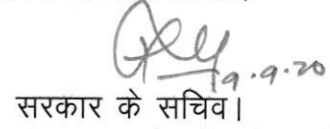 9.9.20
सरकार के सचिव।